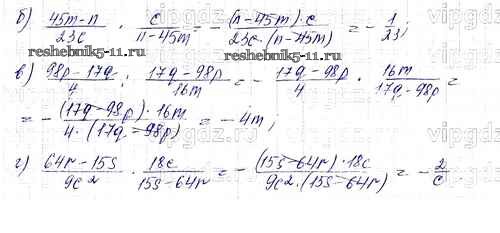 б) (45m - n)/(23c) · c/(n - 45m) = - ((n - 45m) · c)/(23c · (n - 45m)) = - 1/23;
reshebnik5-11.ru reshebnik5-11.ru
в) (98p - 17q)/4 : (17q - 98p)/(16m) = - (17q - 98p)/4 · (16m)/(17q - 98p) =
= - ((17q - 98p) · 16m)/(4 · (17q - 98p)) = - 4m;
г) (64r - 15s)/(9c²) · (18c)/(15s - 64r) = - ((15s - 64r) · 18c)/(9c² · (15s - 64r)) = - 2/c.
vipgdz.ru